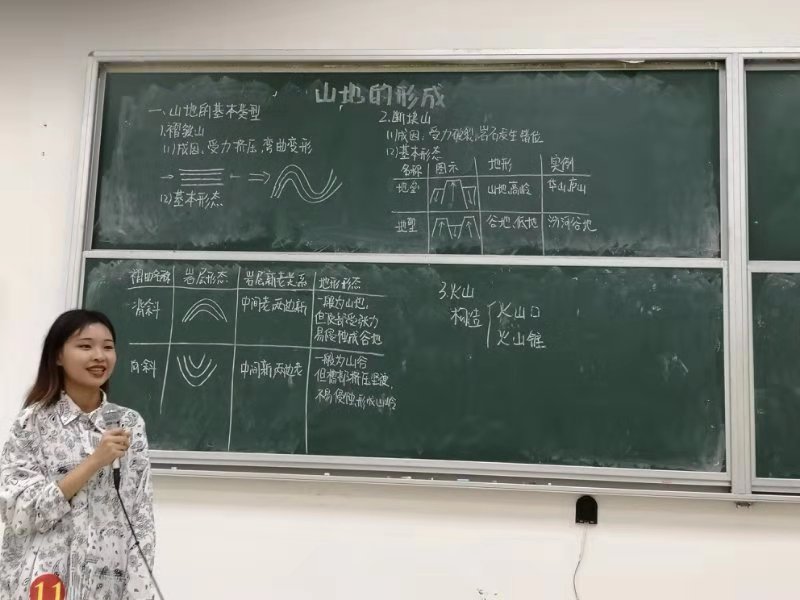 山地的形成
一、山地的基本类型
1.褶皱山
(1)成因:受力挤压,弯曲变形
(2)基本形态
2.断块山
(1)成因:受力破裂,岩石发生错位
(2)基本形态
名称 图示 地形 实例
地垒 山地、高岭 华山、庐山
地堑 谷地、低地 汾河谷地
褶曲名称 岩层形态 岩层新老关系 地形形态
背斜 中间老两边新 一般为山地,
但顶部受张力
易侵蚀成谷地
向斜 中间新两边老 一般为山谷
但槽部挤压坚硬,
不易侵蚀,形成山岭
3.火山
构造 火山口
火山锥
11